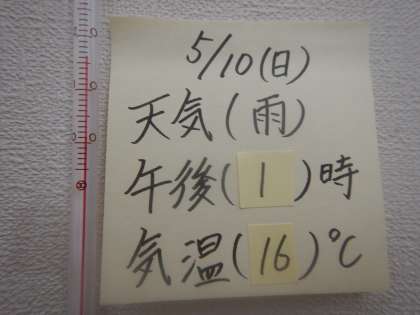 5/10(日)
天気(雨)
午後(1)時
気温(16)℃